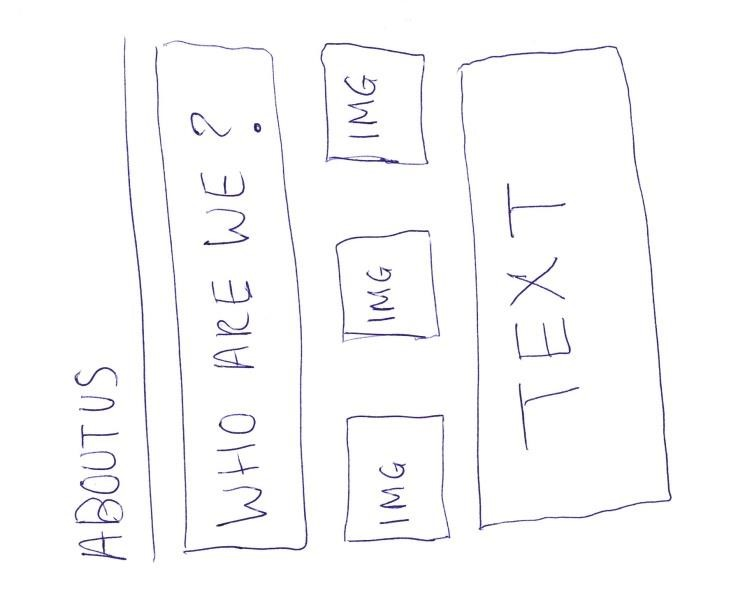 ABOUT US
WHO ARE WE?
IMG IMG IMG
TEXT